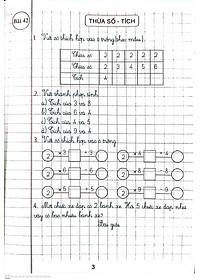 Bài 42
THỪA SỐ - TÍCH
1. Viết số thích hợp vào ô trống (theo mẫu).
Thừa số 2 2 2 2 2
Thừa số 2 3 4 5 6
Tích 4
2. Viết thành phép tính.
a) Tích của 3 và 8
b) Tích của 4 và 8
c) Tích của 9 và 4
3. Viết số thích hợp vào ô trống.
2 × 3 + 3 2 × 4 - 4
2 × 6 - 6 2 × 8 - 8
2 × 5 + 5 2 × 9 - 9
4. Mỗi chiếc xe đạp có 2 bánh xe. Hỏi 5 chiếc xe đạp như
vậy có bao nhiêu bánh xe?
Bài giải
3